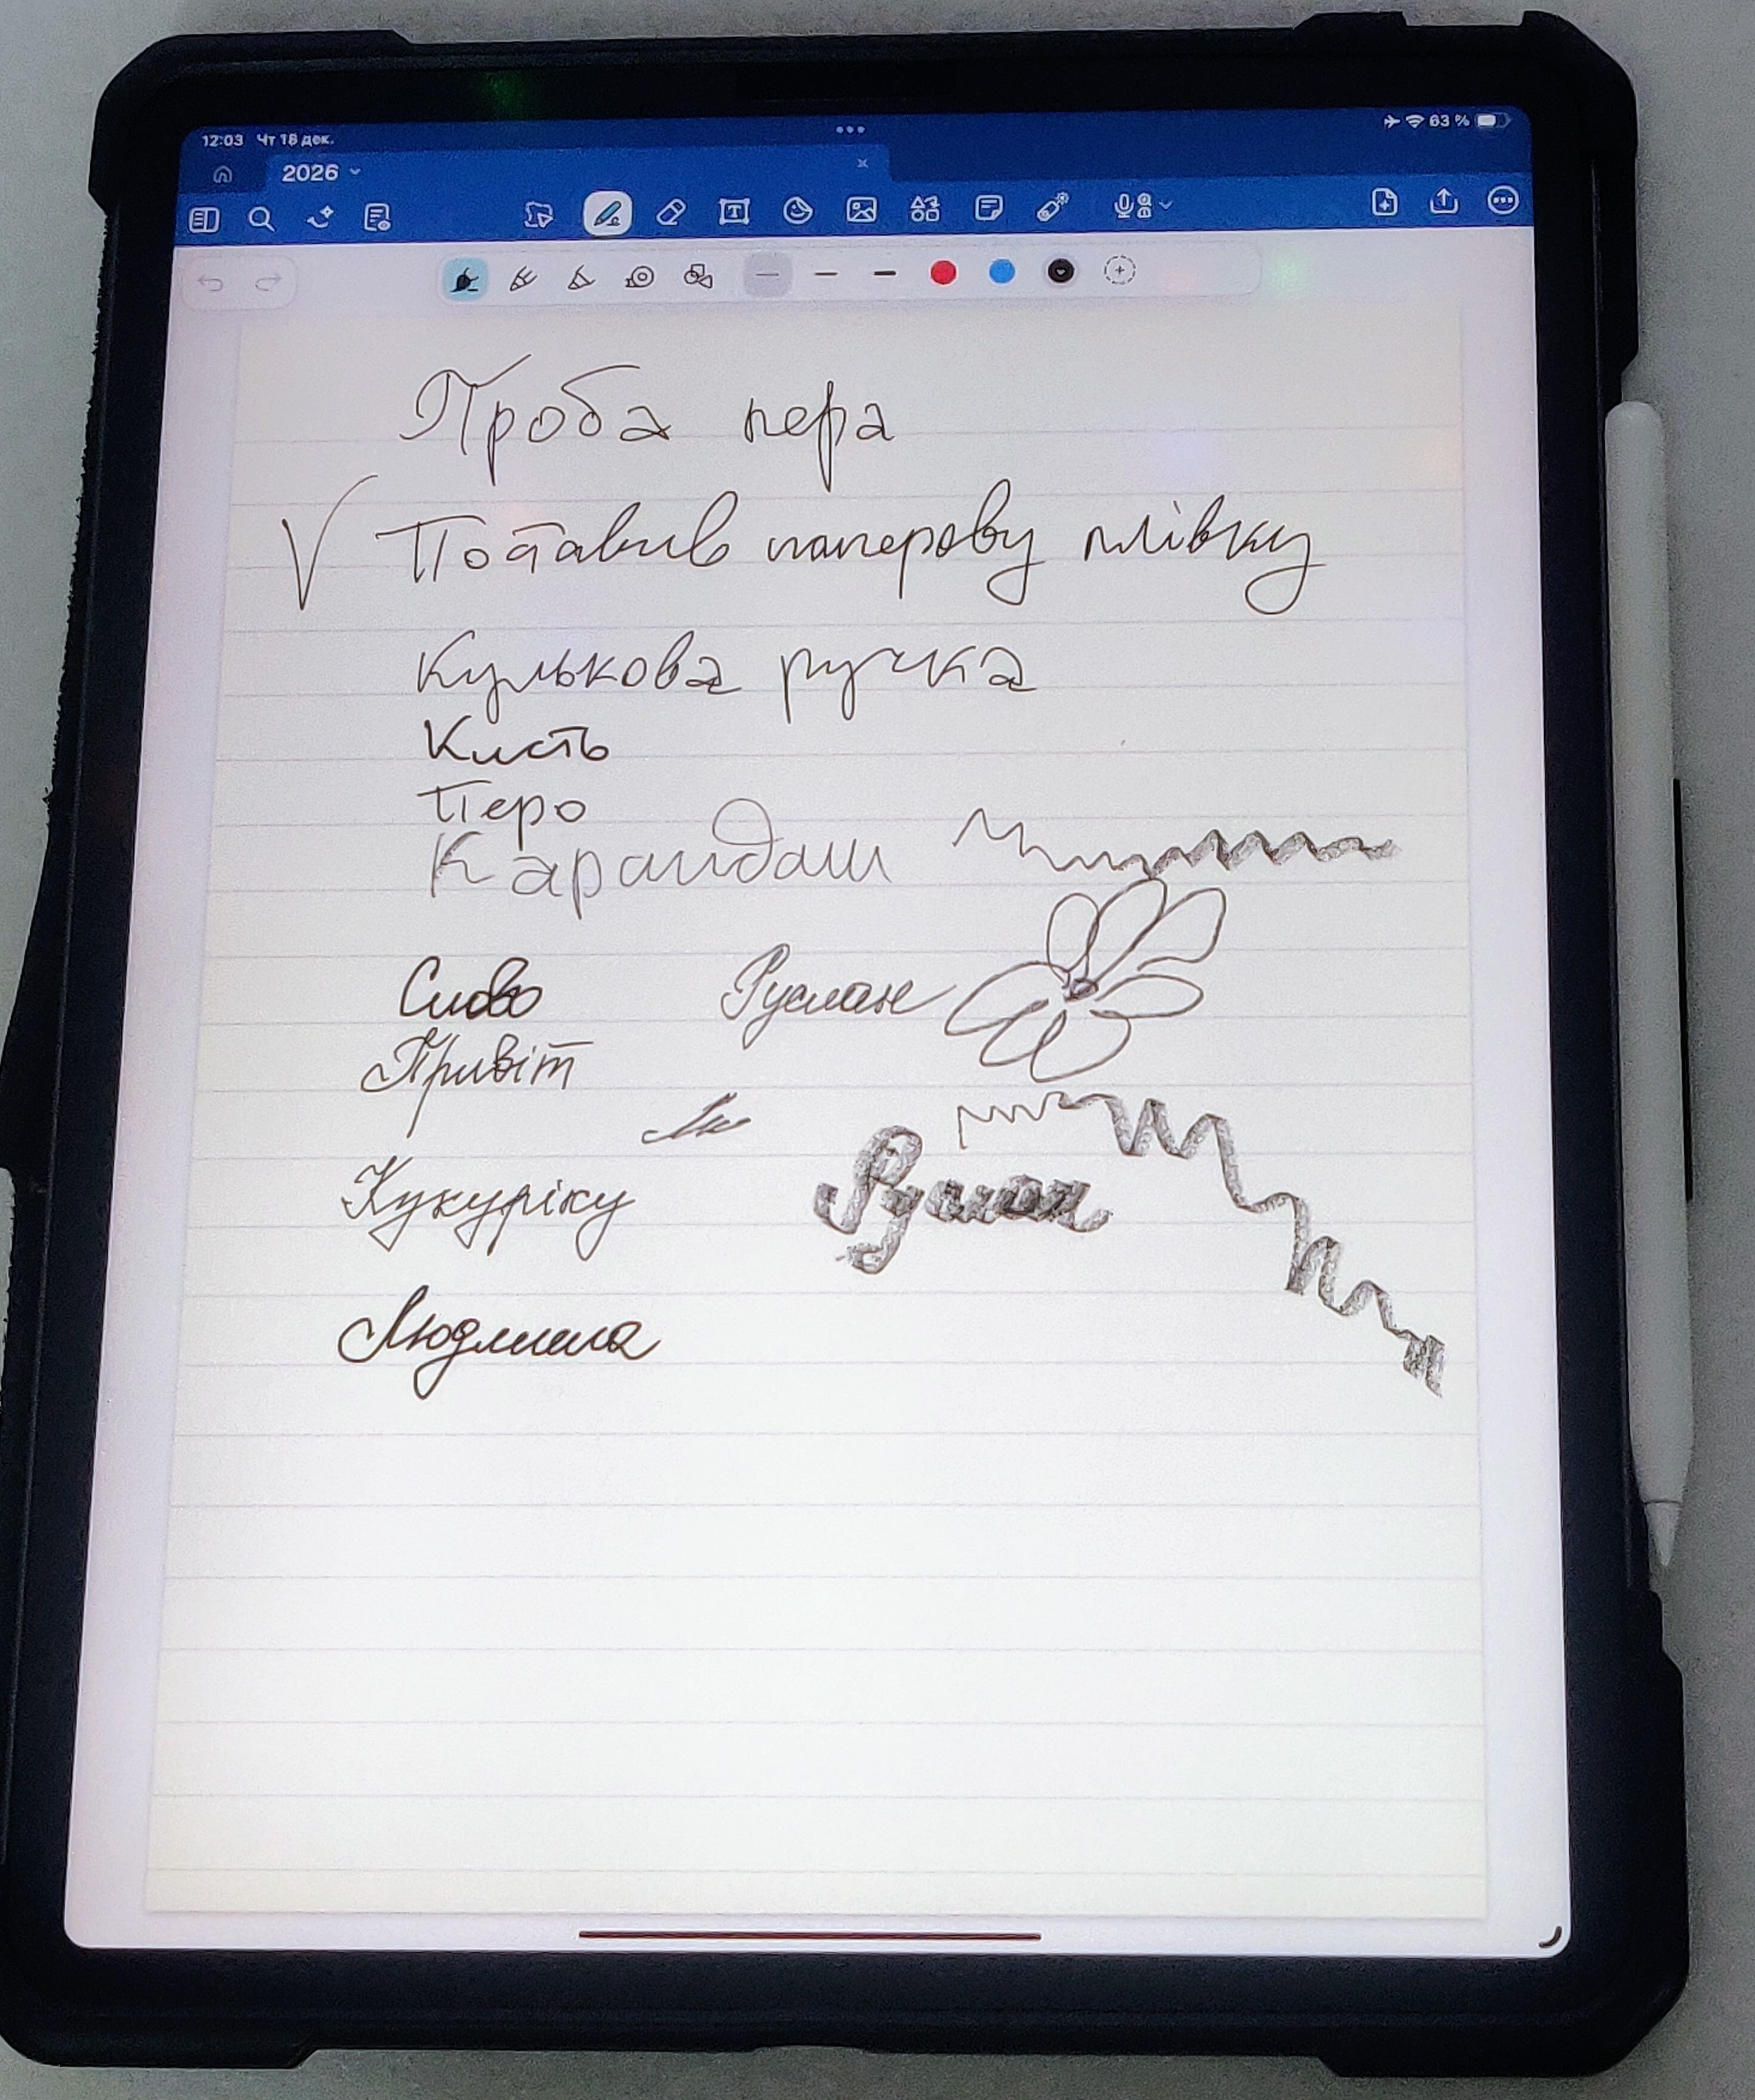 12:03 Чт 18 дек.
63 %
2026
Проба пера
√ Поставив паперову плівку
Кулькова ручка
Кисть
Перо
Карандаш
Слово Руслан
Привіт
Кукуріку Руслан
Людмила